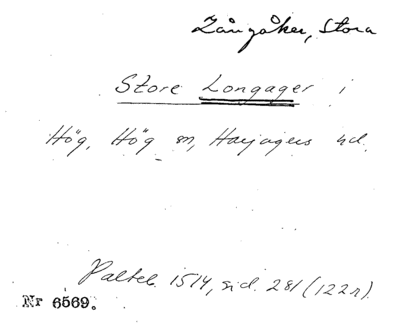 Långåker, Stora
Store Longager i
Hög, Hög sn, Harjagers hd.
Palteb. 1514, sid. 281 (122r).
Nr 6569.